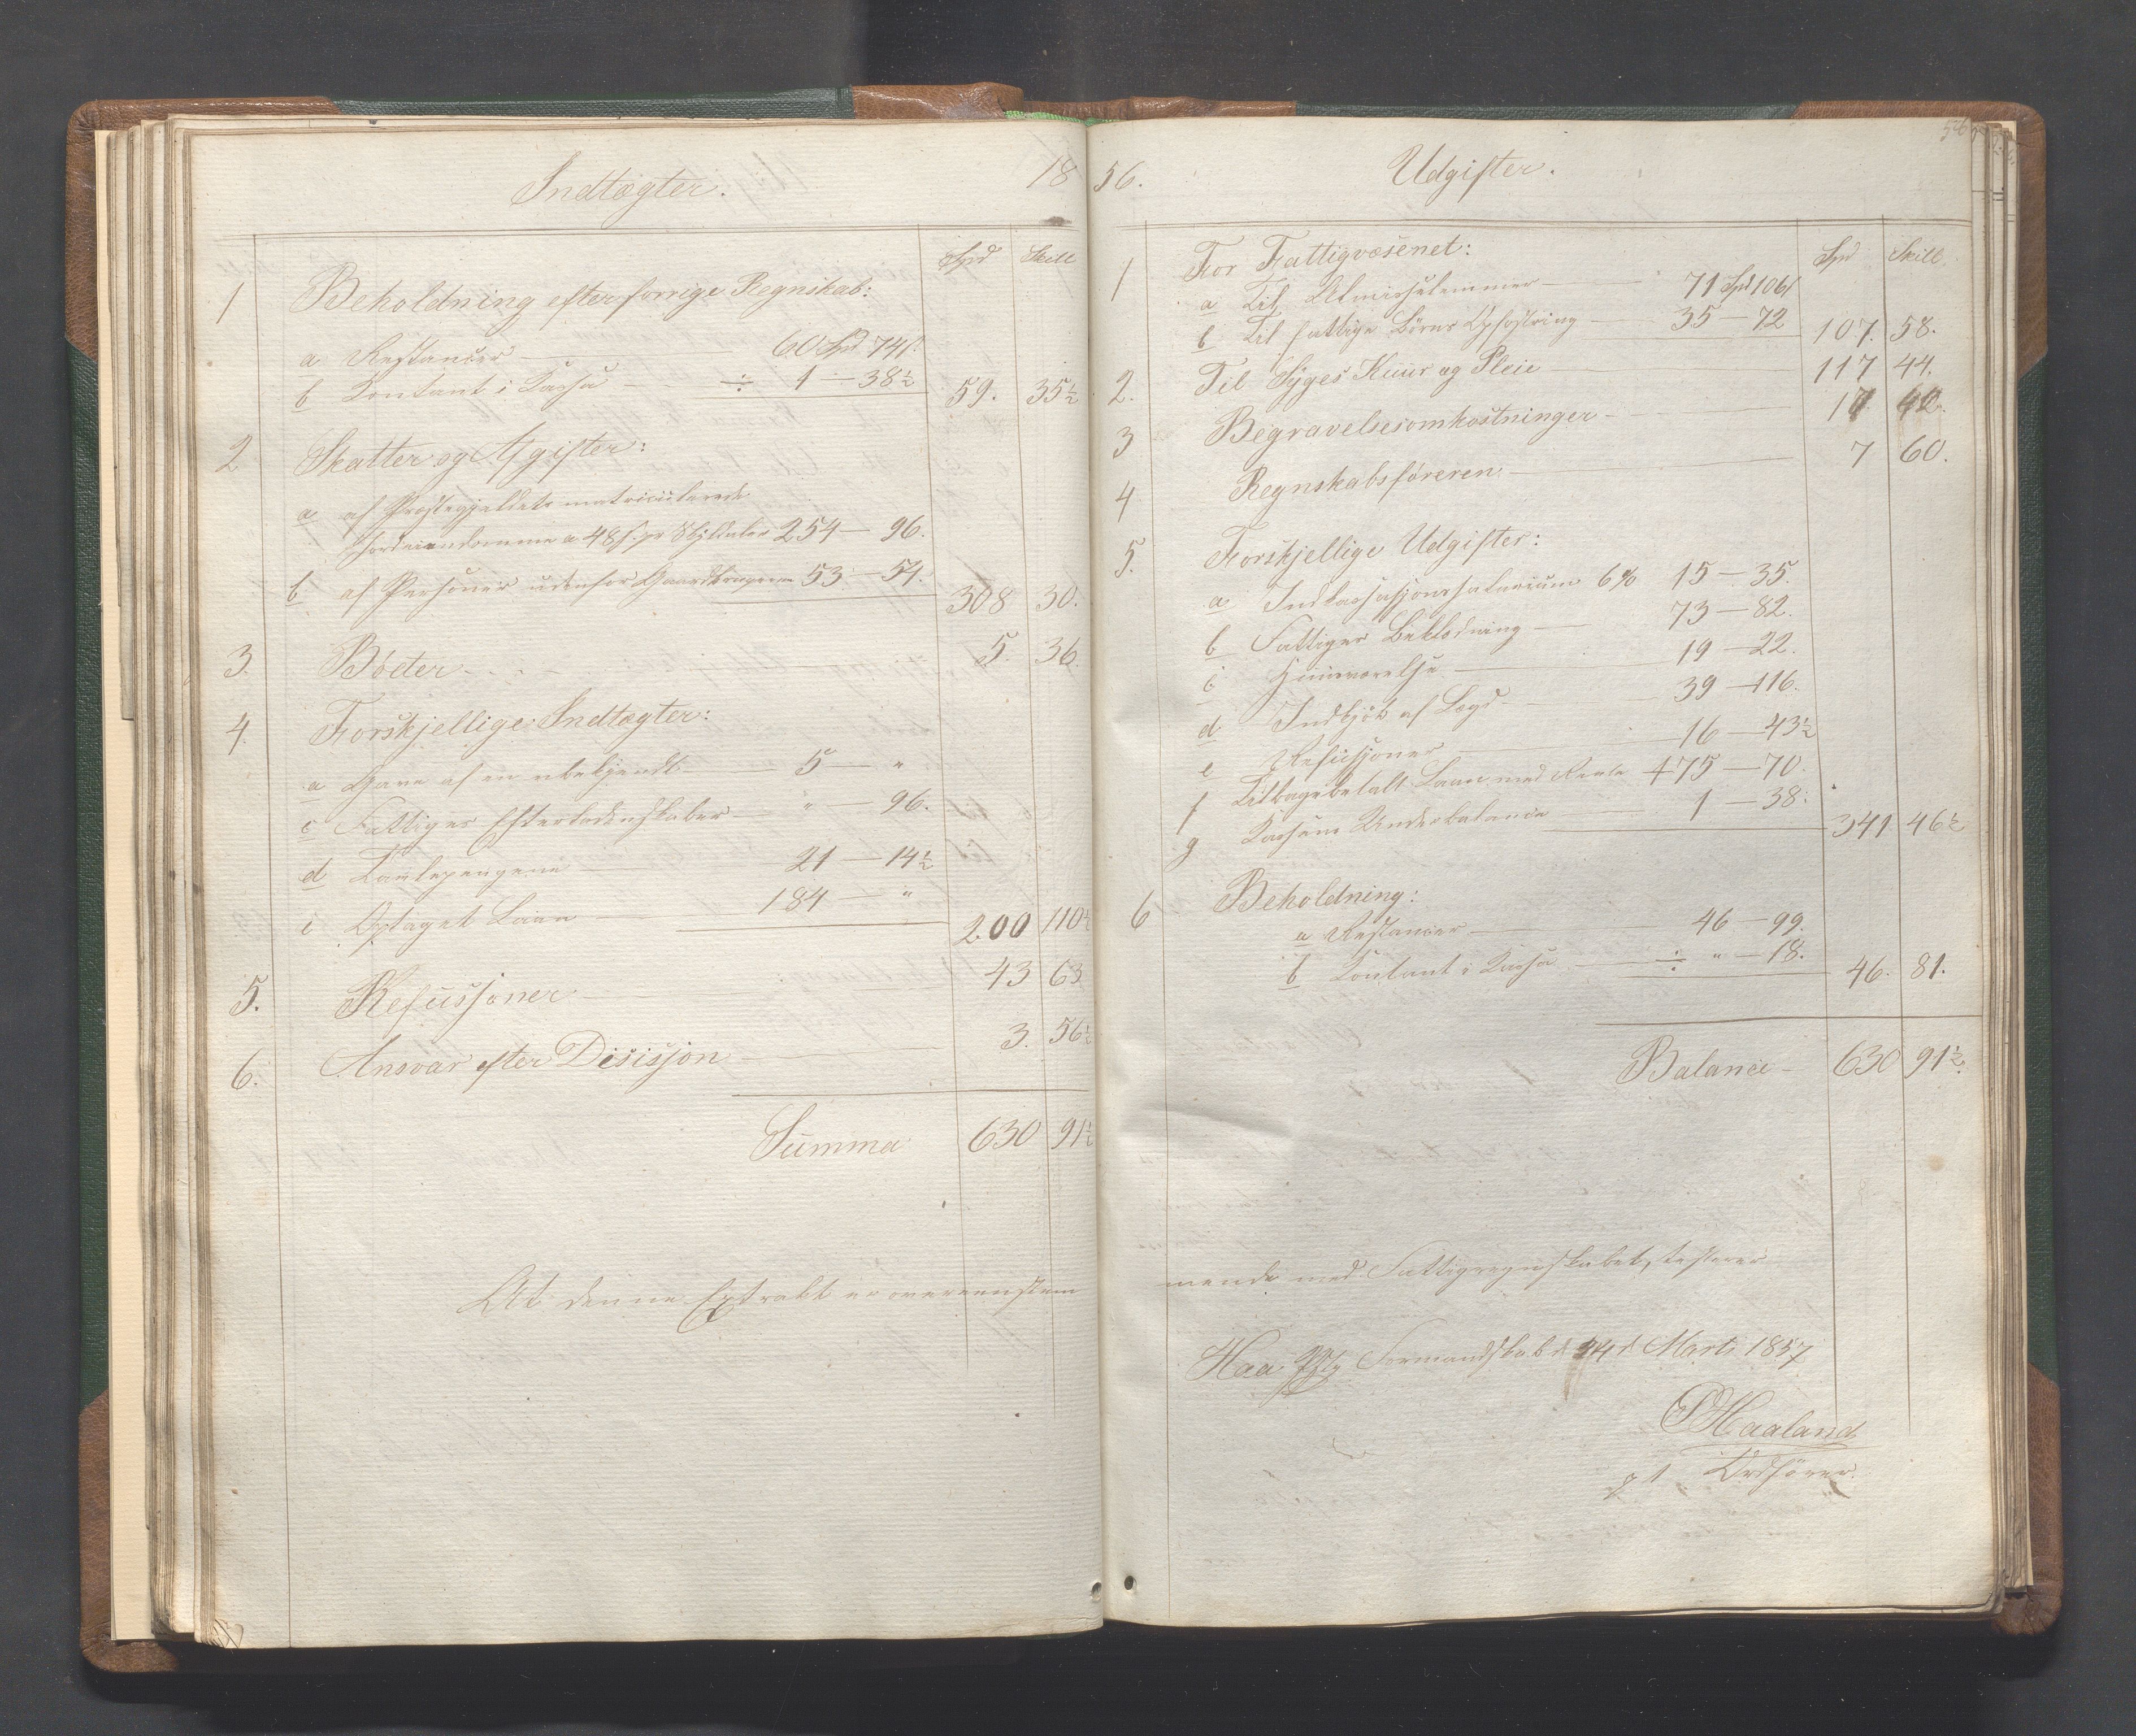 Indtægter.
18
Spd Skill
1 Beholdning efter forrige Regnskab:
a Restancer — 60 Spd 74 s.
b Contant i Cassa — ÷ 1 — 38½
59. 35½
2 Skatter og Afgifter:
a af Præstegjeldets matriculerede
Jordeiendomme a 48 s. pr Skylddaler 254 — 96.
b af Personer udenfor Gaardbrugerne 53 — 54.
308 30.
3. Bøder 5. 36
4. Forskjellige Indtægter:
a Gave af en ubekjendt — 5 — "
c Fattiges Efterladenskaber — " — 96.
d — 21 — 14½
e Optaget Laan — 184 — "
200 110½
5. Refusjoner — 43 63
6. Ansvar efter Desisjon — 3. 56½
Summa 630 91½
At denne Extrakt er overeenstem
56.
Udgifter.
56
Spd Skill
1 For Fattigvæsenet:
a Til Almisselemmer — 71 Spd 106 s
b Til fattige Børns Opfostring — 35 — 72
107. 58.
2. Til Syges Kuur og Pleie — 117 44.
3 Begravelsesomkostninger —
4 Regnskabsføreren — 7 60.
5. Forskjellige Udgifter:
a Indkassasjonssalarium 6% 15 — 35.
b Fattiges Beklædning — 73 — 82.
c Huusværelse — 19 — 22.
d Indkjøb af Lægd — 39 — 116.
e Refusjoner — 16 — 43½
f Tilbagebetalt Laan med Rente 175 — 70.
g Cassens Underbalance — 1 — 38.
341 46½
6 Beholdning:
a Restancer — 46 — 99.
b Contant i Cassa — ÷ " — 18.
46. 81.
Balance — 630 91½.
mende med Fattigregnskabet, testerer
Haa Formandskab d. 24 d Marts 1857
Haaland
p t Ordfører.